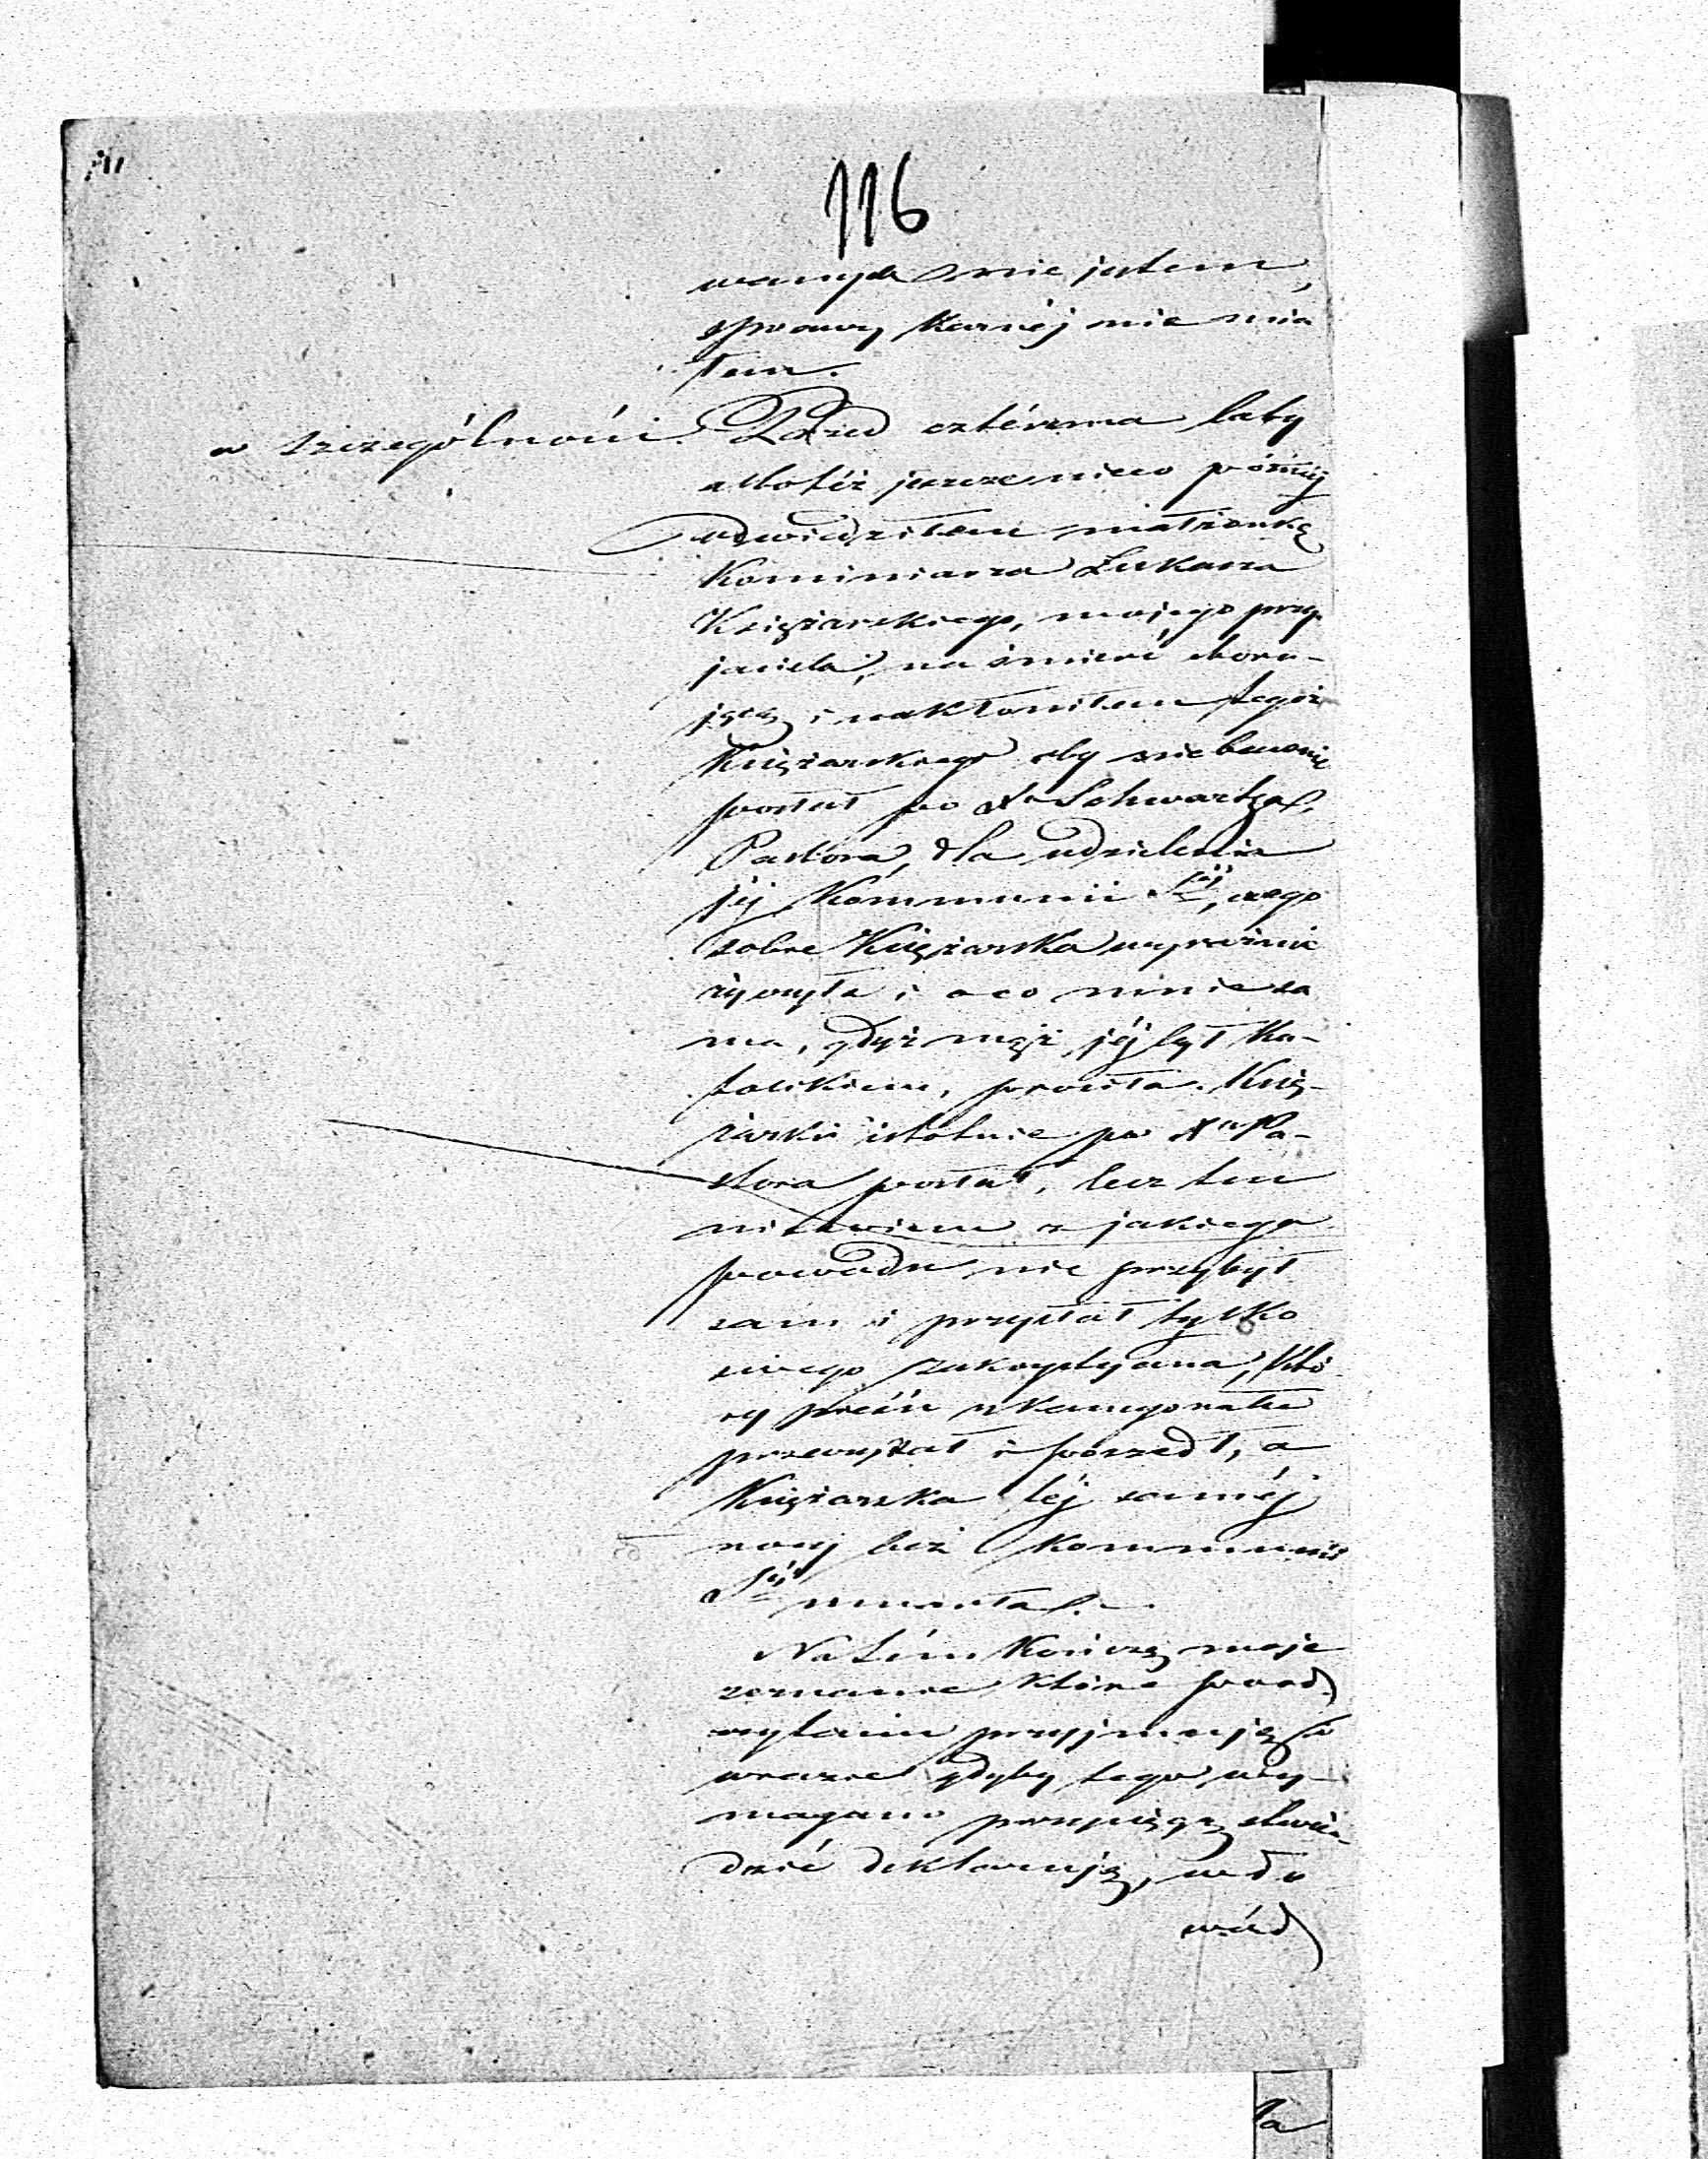 116
wanym nie jestem,
sprawy karnéj nie mia
łem.
w szczególności. Przed czterma laty
albo téż jeszcze nieco późniéj
odwiedziłem małżonkę
Kominiarza Łukasza
Księżarskiego, mojego przy
jaciela, na śmierć choru-
jącą i nakłoniłem tegoż
Księżarskiego aby niebawnie
posłał po Xa Schwartza,
Pastora, dla udzielenia
jéj Kommunii Stéj, czego
sobie Księżarska wyraźnie
życzyła i o co mnie sa
ma, gdyż mąż jéj był Ka-
tolikiem, prosiła. Księ-
żarski istotnie po Xa Pa-
stora posłał, lecz ten
nie wiem z jakiego
powodu nie przybył
sam i przysłał tylko
swego zakrystyana, któ-
ry pieśń z kancyonału
przeczytał i poszedł, a
Księżarska téj saméj
nocy bez Kommunii
Stéj umarła.
Na tém kończę moje
zeznanie które po od
czytaniu przyjmuję i
w razie gdyby tego wy-
magano przysięgą stwier-
dzić deklaruję, w do
wód